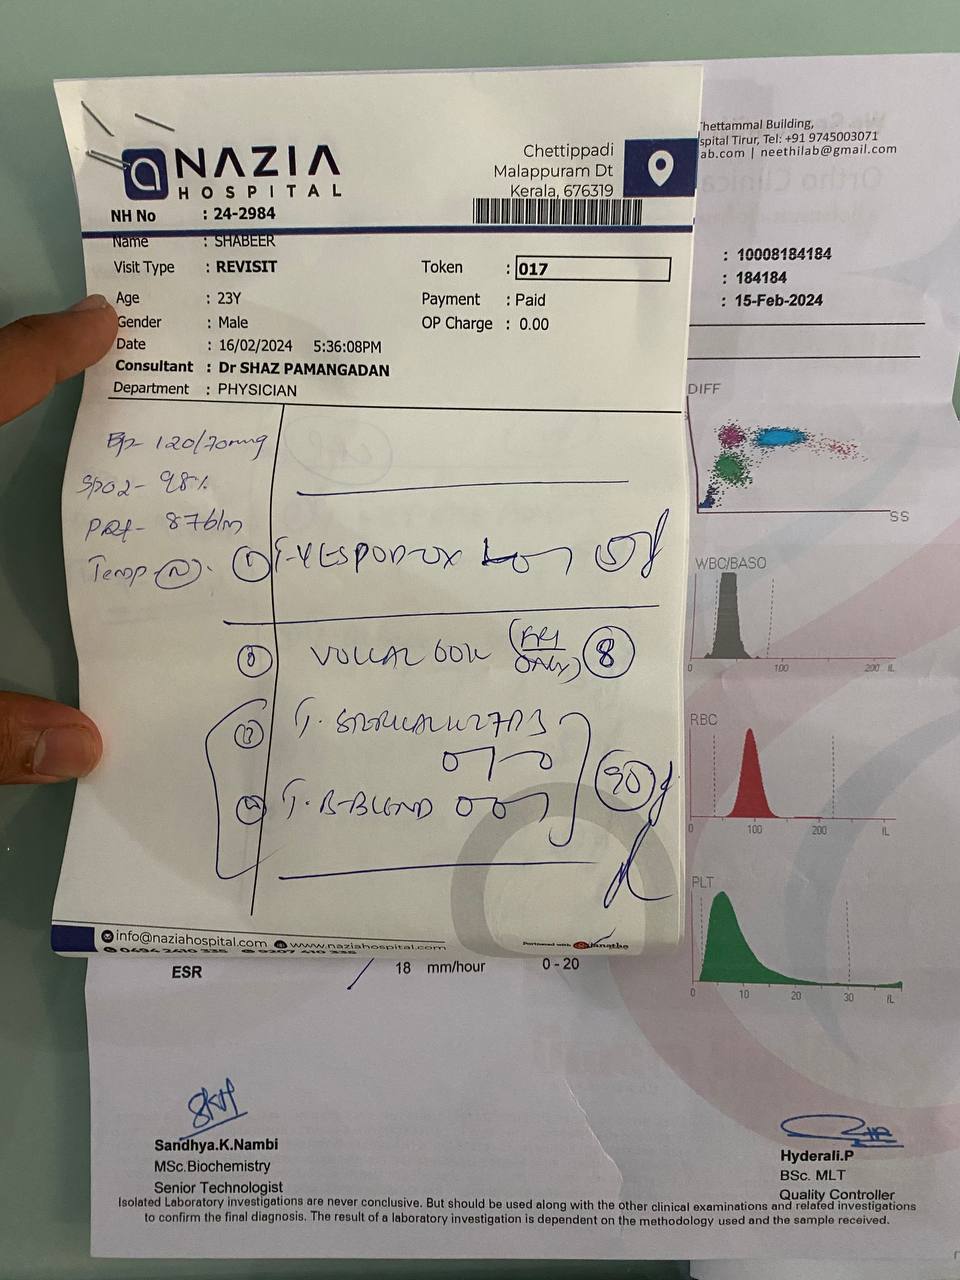 NAZIA
HOSPITAL
Chettippadi
Malappuram Dt
Kerala, 676319
NH No : 24-2984
Name : SHABEER
Visit Type : REVISIT
Token : 017
Age : 23Y
Payment : Paid
Gender : Male
OP Charge : 0.00
Date : 16/02/2024 5:36:08PM
Consultant : Dr SHAZ PAMANGADAN
Department : PHYSICIAN
120/70mmg
SPO2- 98%
87b/m
Temp- N
8
T. B-BLEND 001
90
info@naziahospital.com www.naziahospital.com
Partnered with
hettammal Building,
spital Tirur, Tel: +91 9745003071
ab.com | neethilab@gmail.com
: 10008184184
: 184184
: 15-Feb-2024
DIFF
SS
WBC/BASO
0 100 200 fL
RBC
0 100 200 fL
PLT
0 10 20 30 fL
ESR 18 mm/hour 0 - 20
Sandhya.K.Nambi
MSc.Biochemistry
Senior Technologist
Hyderali.P
BSc. MLT
Quality Controller
Isolated Laboratory investigations are never conclusive. But should be used along with the other clinical examinations and related investigations
to confirm the final diagnosis. The result of a laboratory investigation is dependent on the methodology used and the sample received.